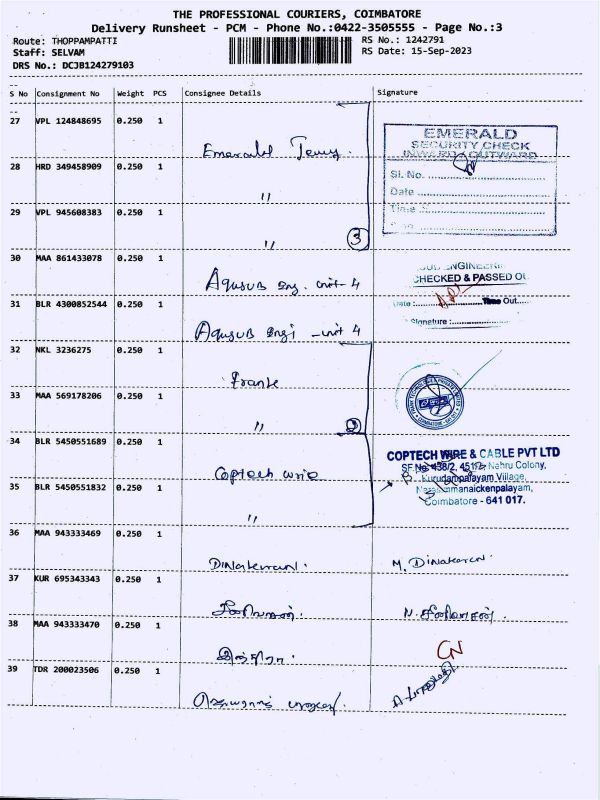 THE PROFESSIONAL COURIERS, COIMBATORE
Delivery Runsheet - PCM - Phone No.:0422-3505555 - Page No.:3
Route: THOPPAMPATTI
Staff: SELVAM
DRS No.: DCJB124279103
RS No.: 1242791
RS Date: 15-Sep-2023
S No Consignment No Weight PCS Consignee Details Signature
27 VPL 124848695 0.250 1
Emerald
EMERALD
SECURITY CHECK
INWARD / OUTWARD
Sl. No.
Date
Time
28 HRD 349458909 0.250 1
"
29 VPL 945608383 0.250 1
" 3
30 MAA 861433078 0.250 1
4
CHECKED & PASSED
31 BLR 4300852544 0.250 1
4
Time Out
Signature :
32 NKL 3236275 0.250 1
33 MAA 569178206 0.250 1
"
34 BLR 5450551689 0.250 1
Coptech
COPTECH WIRE & CABLE PVT LTD
Nehru Colony,
Kurudampalayam Village,
Narasimmanaickenpalayam,
Coimbatore - 641 017.
35 BLR 5450551832 0.250 1
"
36 MAA 943333469 0.250 1
Dinakaran. M. Dinakaran.
37 KUR 695343343 0.250 1
38 MAA 943333470 0.250 1
இந்திரா CN
39 TDR 200023506 0.250 1